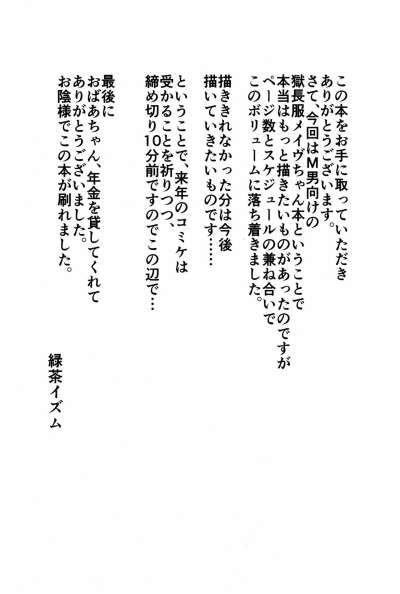 この本をお手に取っていただき
ありがとうございます。
さて、今回はM男向けの
獄長服メイヴちゃん本ということで
本当はもっと描きたいものがあったのですが
ページ数とスケジュールの兼ね合いで
このボリュームに落ち着きました。
描ききれなかった分は今後
描いていきたいものです……
ということで、来年のコミケは
受かることを祈りつつ、
締め切り10分前ですのでこの辺で…
最後に
おばあちゃん、年金を貸してくれて
ありがとうございました。
お陰様でこの本が刷れました。
緑茶イズム